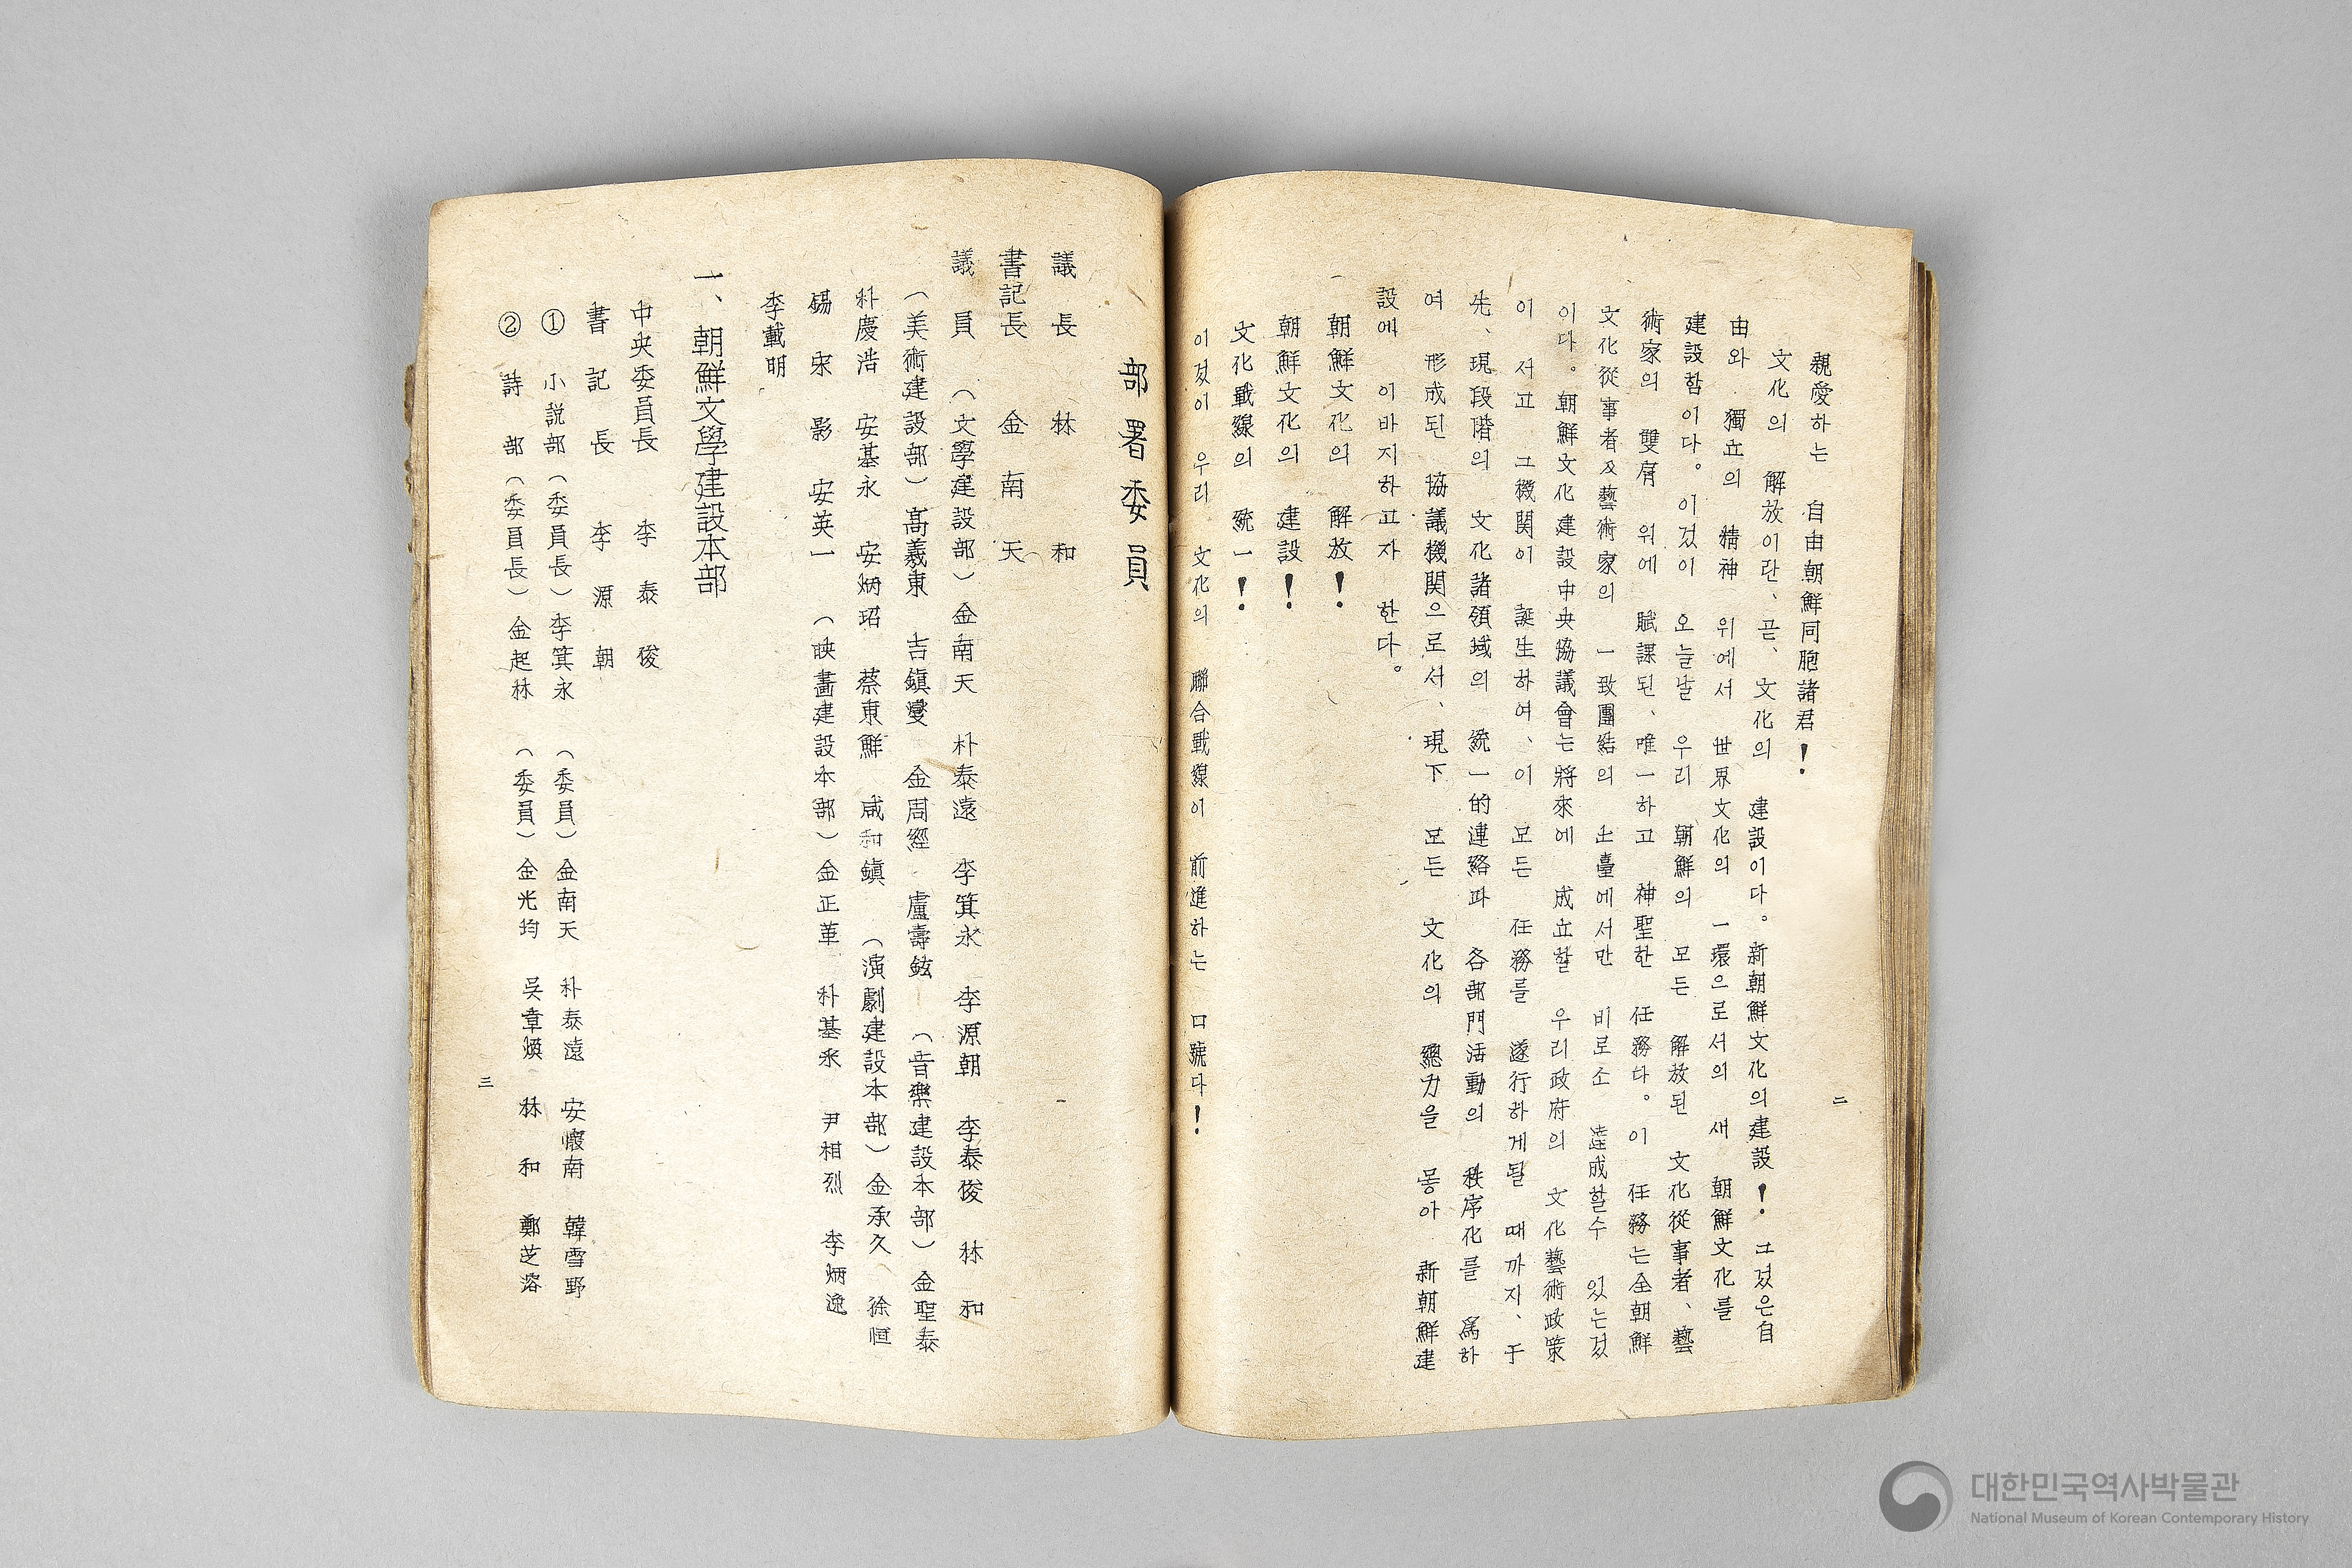 二
親愛하는 自由朝鮮同胞諸君!
文化의 解放이란、곧、文化의 建設이다。新朝鮮文化의建設! 그것은自
由와 獨立의 精神 위에서 世界文化의 一環으로서의 새 朝鮮文化를
建設함이다。이것이 오늘날 우리 朝鮮의 모든 解放된 文化從事者、藝
術家의 雙肩 위에 賦課된、唯一하고 神聖한 任務다。이 任務는全朝鮮
文化從事者及藝術家의 一致團結의 土臺에서만 비로소 達成할수 있는것
이다。朝鮮文化建設中央協議會는將來에 成立할 우리政府의 文化藝術政策
이 서고 그機関이 誕生하여、이 모든 任務를 遂行하게될 때까지、于
先、現段階의 文化諸領域의 統一的連絡과 各部門活動의 秩序化를 爲하
여 形成된 協議機関으로서、現下 모든 文化의 總力을 몽아 新朝鮮建
設에 이바지하고자 한다。
朝鮮文化의 解放!
朝鮮文化의 建設!
文化戰線의 統一!
이것이 우리 文化의 聯合戰線이 前進하는 口號다!
部署委員
議長 林和
書記長 金南天
議員 (文學建設部) 金南天 朴泰遠 李箕永 李源朝 李泰俊 林和
(美術建設部) 高羲東 吉鎭燮 金周經 盧壽鉉 (音樂建設本部) 金聖泰
朴慶浩 安基永 安炳玿 蔡東鮮 咸和鎭 (演劇建設本部) 金承久 徐恒
錫 宋影 安英一 (映畵建設本部) 金正革 朴基采 尹相烈 李炳逸
李載明
一、朝鮮文學建設本部
中央委員長 李泰俊
書記長 李源朝
① 小説部 (委員長) 李箕永 (委員) 金南天 朴泰遠 安懷南 韓雪野
② 詩部 (委員長) 金起林 (委員) 金光均 吳章煥 林和 鄭芝溶
三
대한민국역사박물관
National Museum of Korean Contemporary History